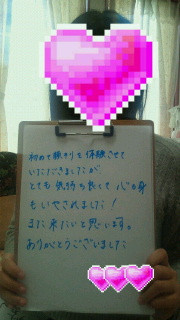 初めて眠ヨガを体験させて
いただきましたが
とても気持ち良くて心身
もいやされました!
また来たいと思います。
ありがとうございました